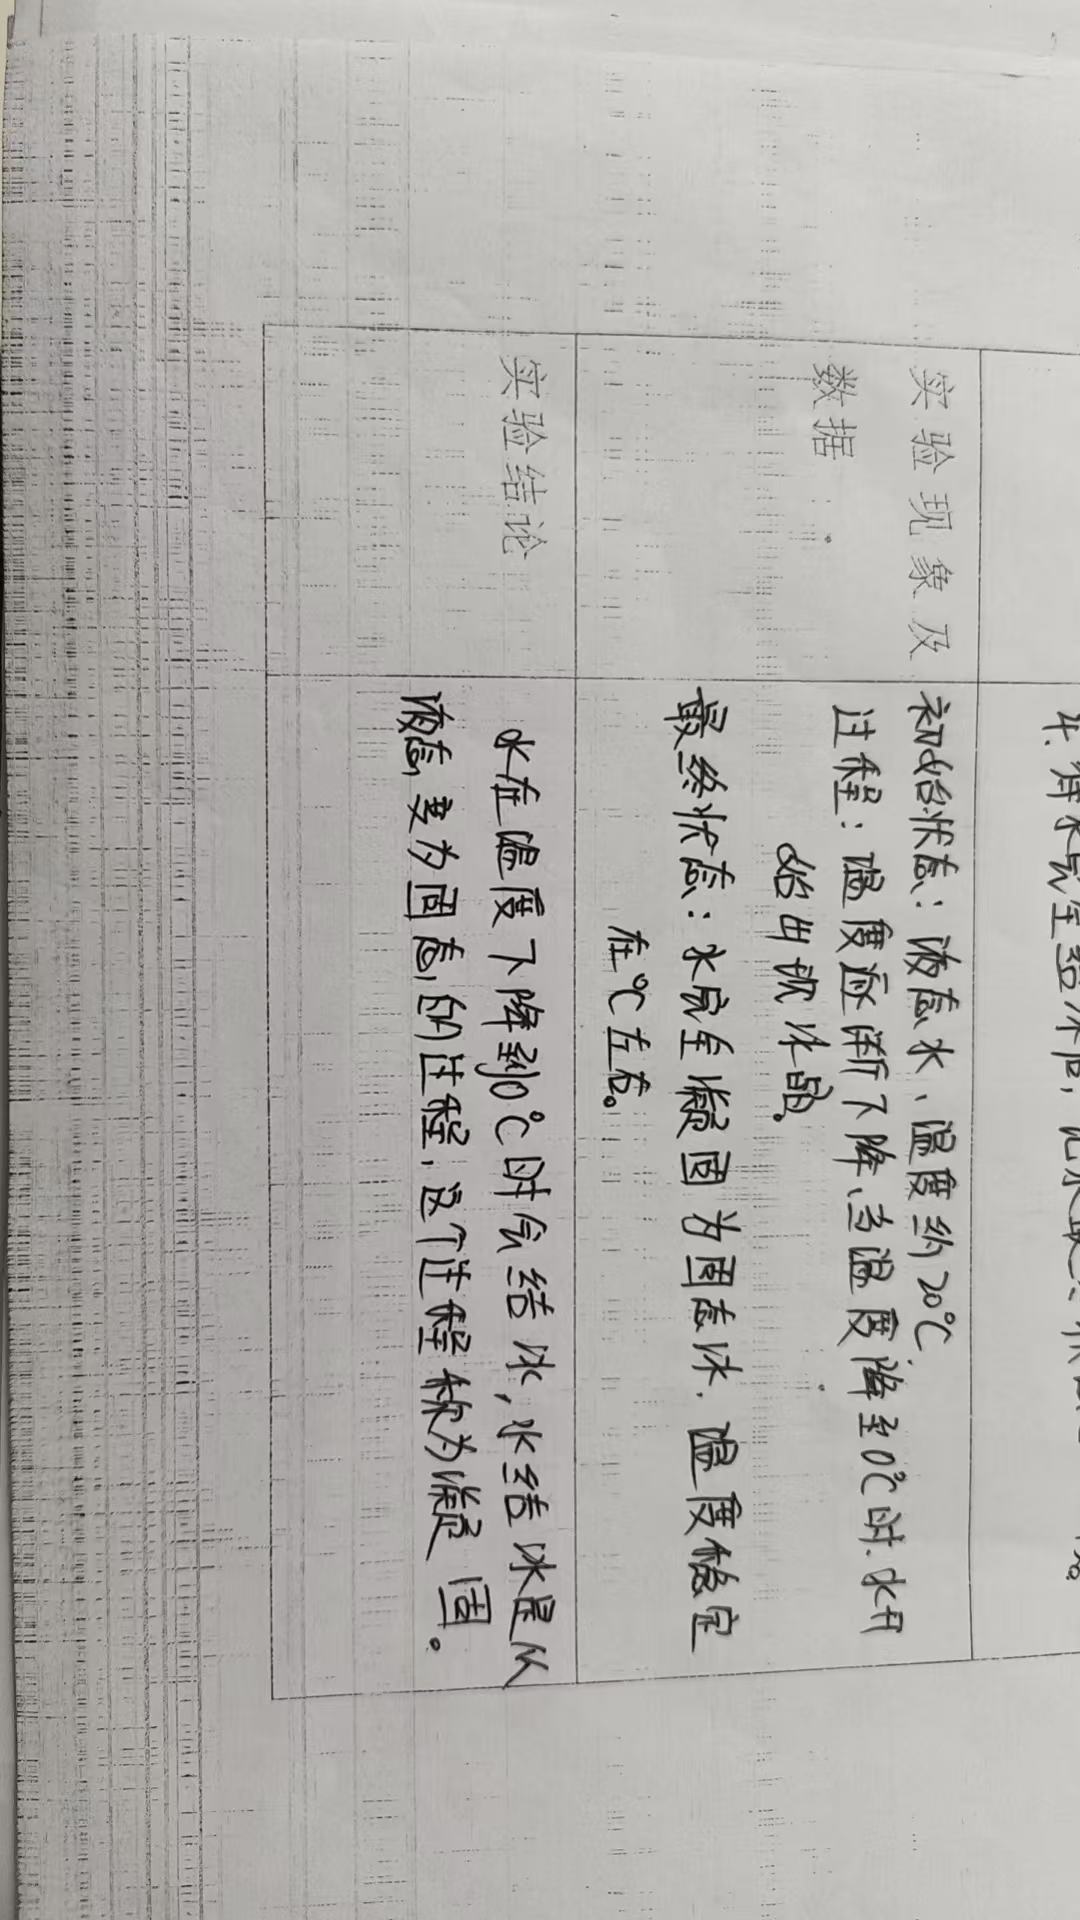 4. 待水完全结冰后, 记录最
实验现象及
数据
初始状态: 液态水、温度约20℃.
过程: 温度逐渐下降、当温度降至0℃时. 水开
始出现冰晶.
最终状态: 水完全凝固为固态冰. 温度稳定
在℃左右。
实验结论
水在温度下降到0℃时会结冰, 水结冰是从
液态变为固态的过程, 这个过程称为凝固。